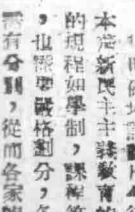 本着新民主主義教育的
的規程如學制，課程
，也需要嚴格劃分，
有分別，從而各家